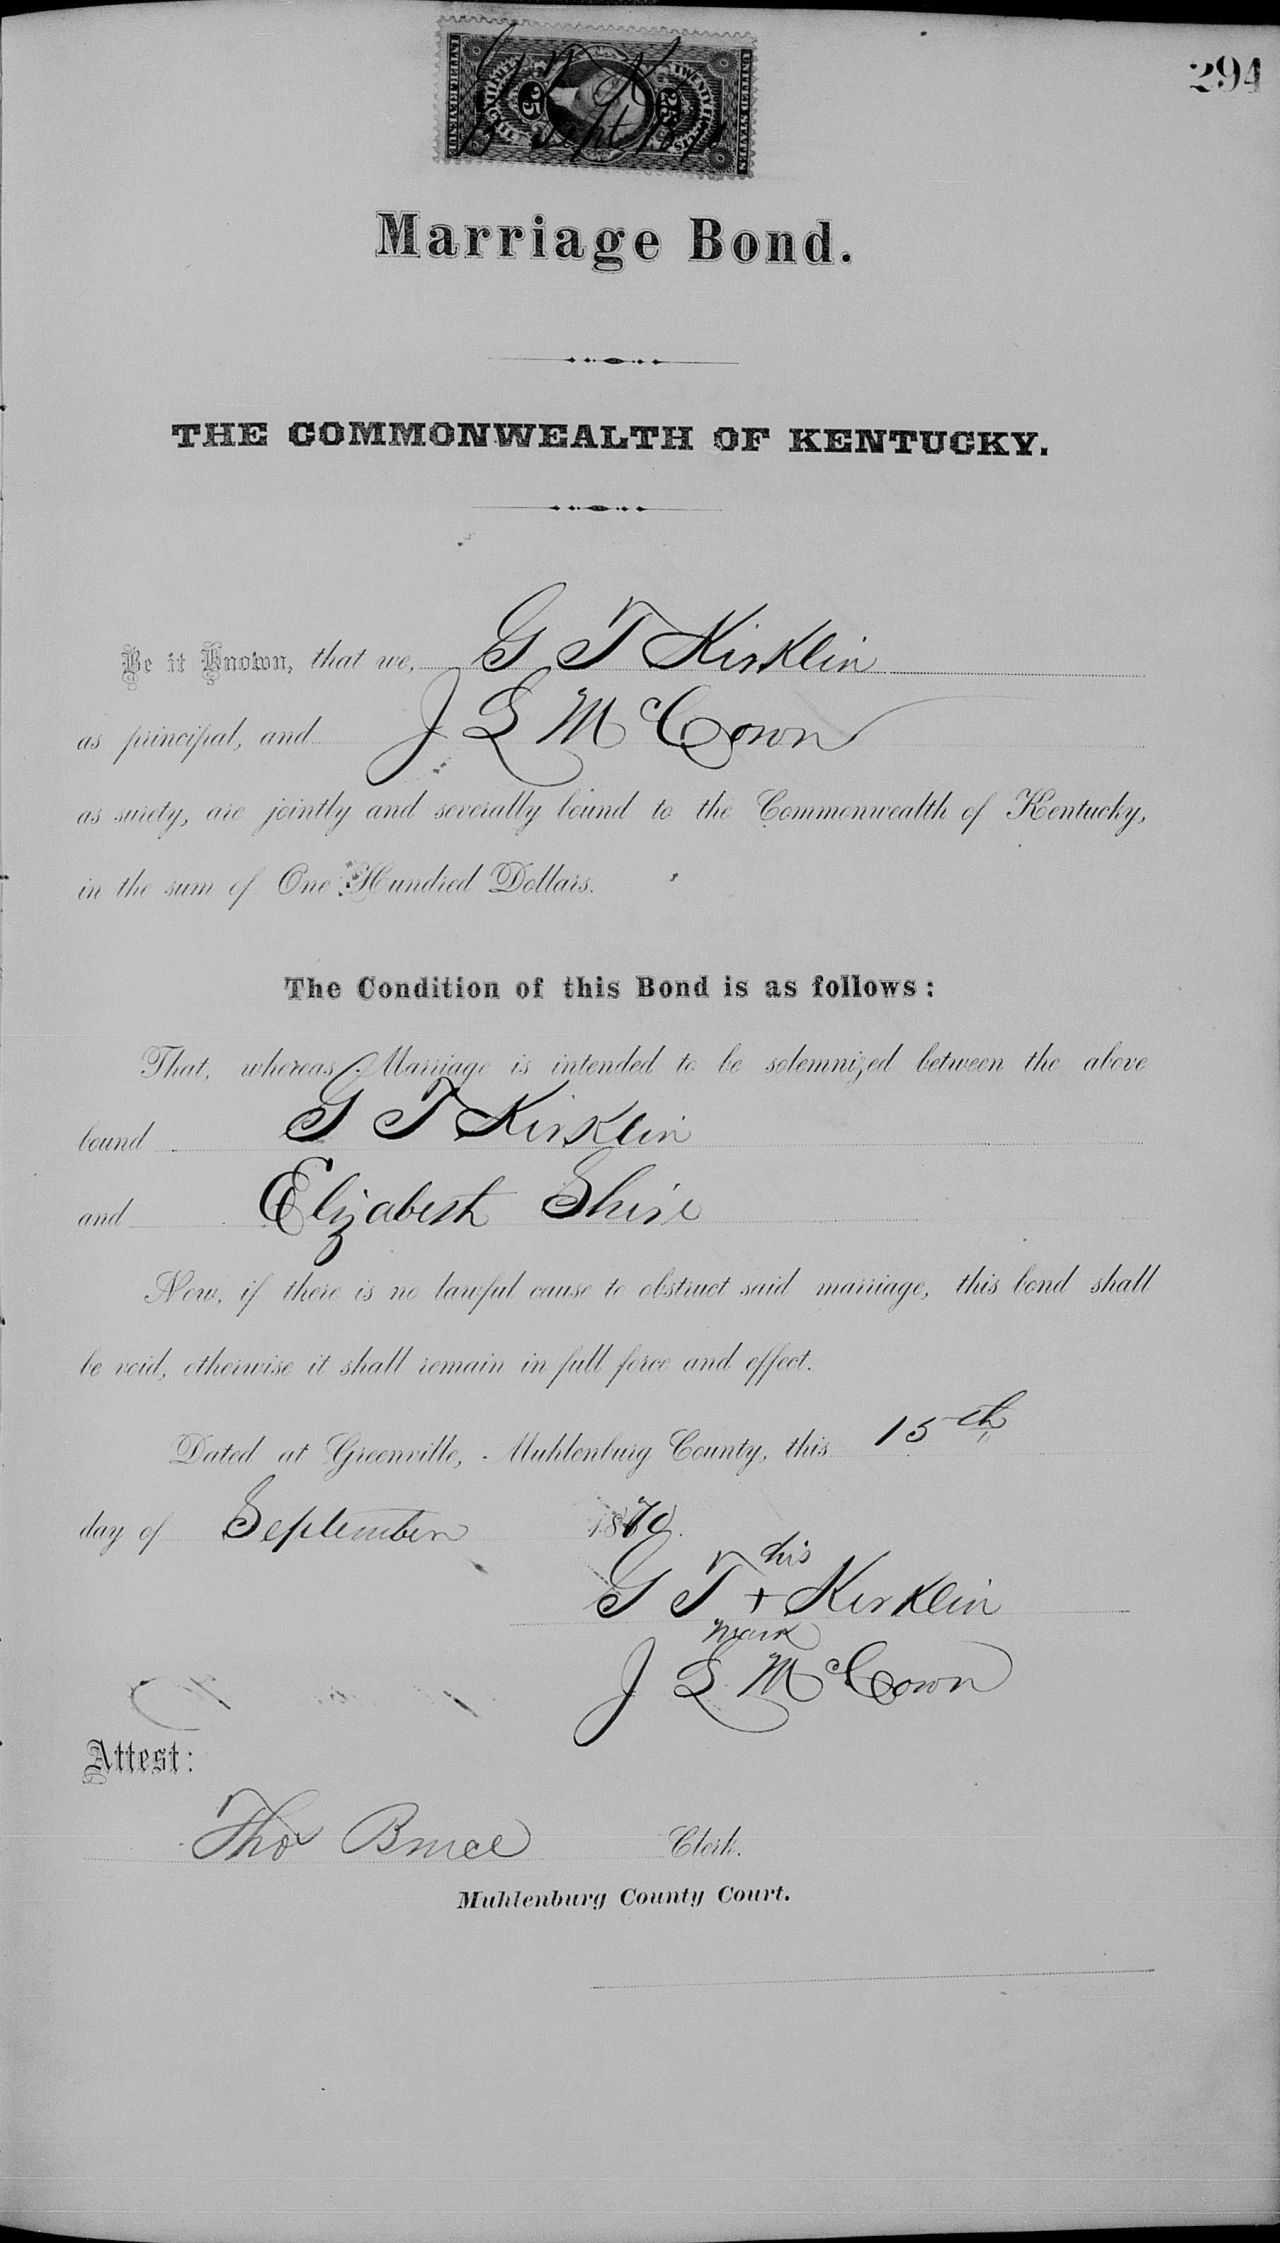 294
UNITED STATES
INTER. REVENUE
25 25
Sept 1870
Marriage Bond.
THE COMMONWEALTH OF KENTUCKY.
Be it Known, that we, G T Kirklin
as principal, and J L McCown
as surety, are jointly and severally bound to the Commonwealth of Kentucky,
in the sum of One Hundred Dollars.
The Condition of this Bond is as follows:
That, whereas Marriage is intended to be solemnized between the above
bound G T Kirklin
and Elizabeth Shire
Now, if there is no lawful cause to obstruct said marriage, this bond shall
be void, otherwise it shall remain in full force and effect.
Dated at Greenville, Muhlenburg County, this 15th
day of September 1870.
his
G T + Kirklin
mark
J L McCown
Attest:
Tho Bruce Clerk.
Muhlenburg County Court.